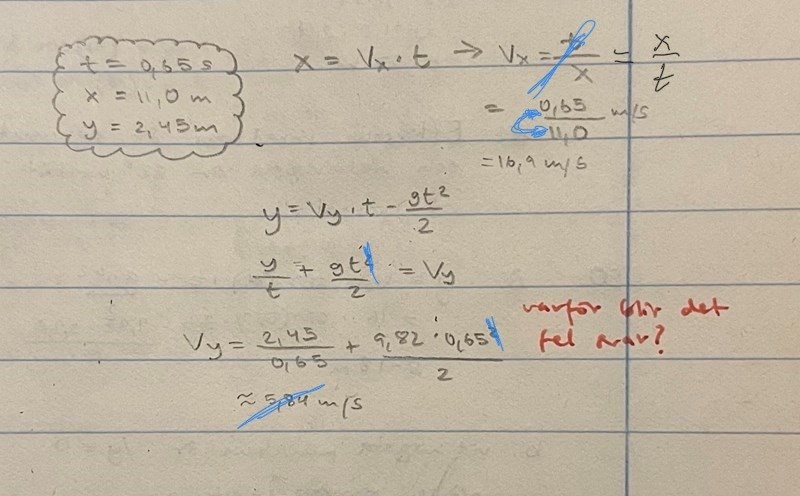 t = 0,65 s
x = 11,0 m
y = 2,45 m
x = Vx · t → Vx = t/x = x/t
= 0,65/11,0 m/s
= 16,9 m/s
y = Vy · t - gt²/2
y/t + gt²/2 = Vy
Vy = 2,45/0,65 + 9,82 · 0,65²/2
≈ 5,84 m/s
varför blir det
fel svar?